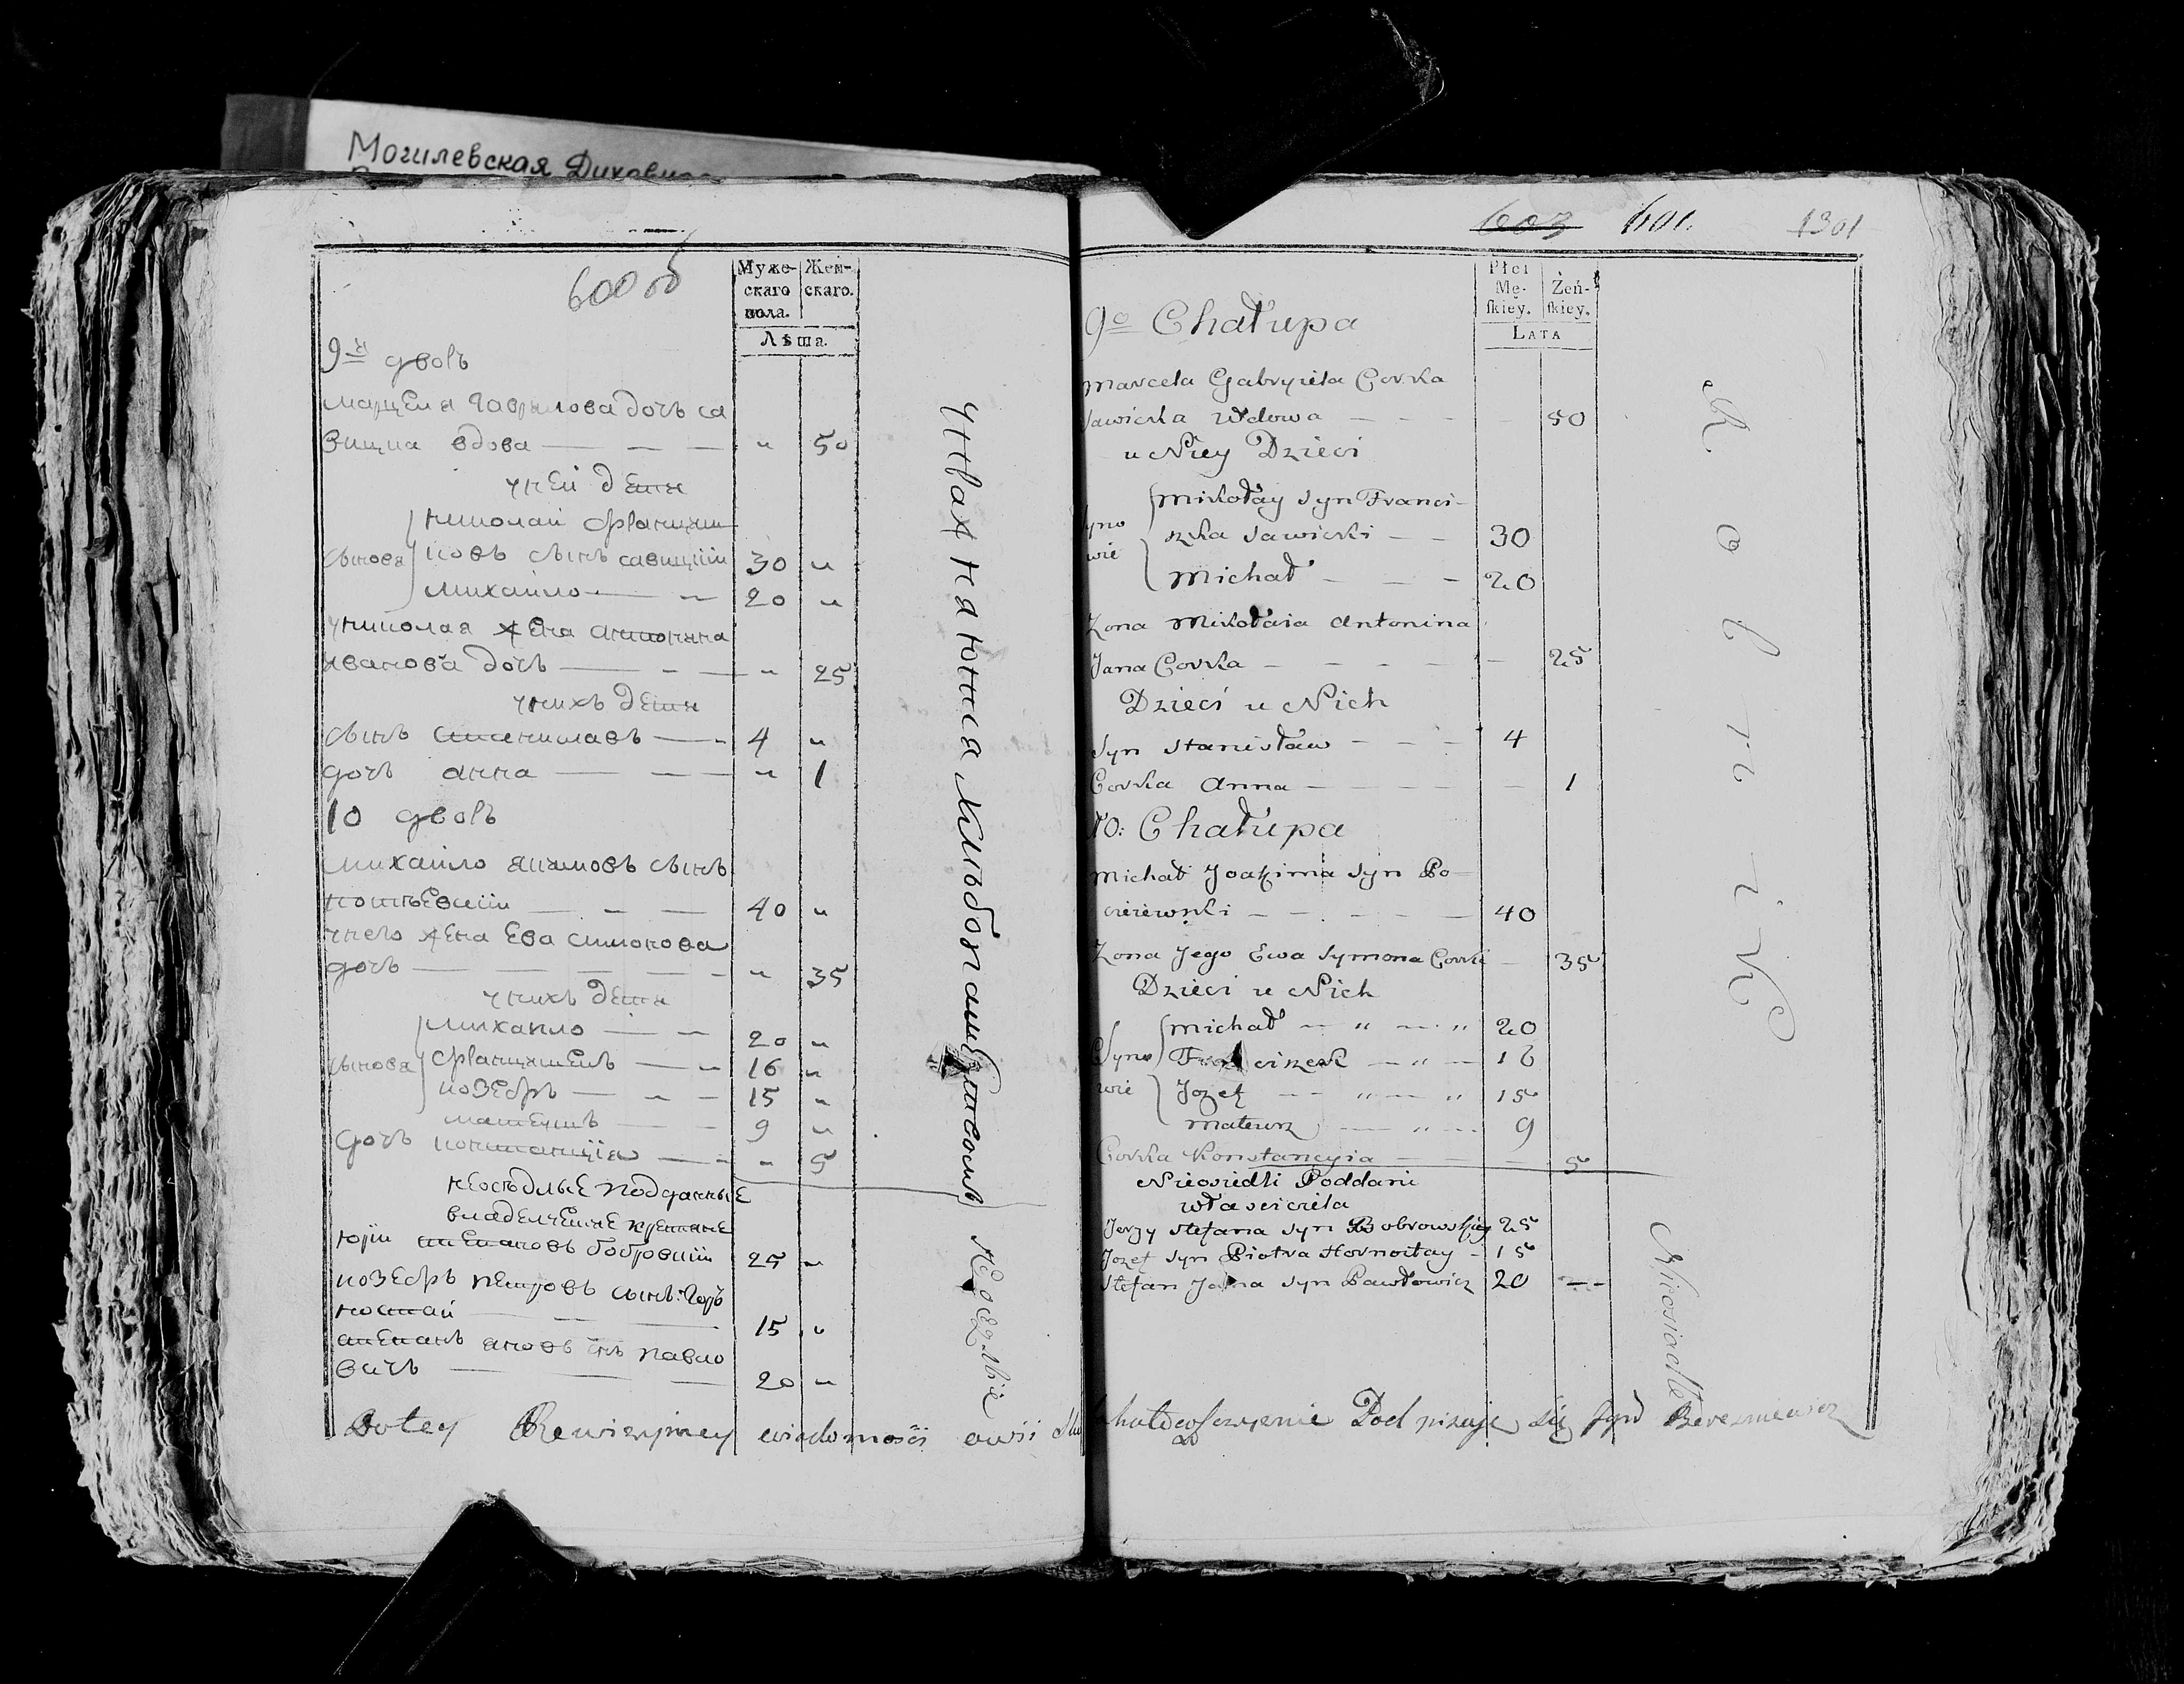 Могилевская Духовная
600 об
Муже-
скаго
пола.
Жен-
скаго.
Лѣта.
9й дворъ
марцеля Гаврилова дочъ са
вицка вдова — — — " 50
у неи дети
николаи франциш
сынове ковъ сынъ савицкiи 30 "
михаило — — 20 "
у николая жена антонина
иванова дочъ — — — " 25
у нихъ дети
сынъ станиславъ — - 4 "
дочъ анна — — — " 1
10 дворъ
михаило якимовъ сынъ
— — — 40 "
у него жена Ева симонова
дочъ — — — — - " 35
у нихъ дети
михаило — — 20 "
сынове францишекъ — — 16 "
юзефъ — - — 15 "
матеушъ — — 9 "
дочъ констанцiя — - " 5
неоседлые подданные
владелческие крестяне
юрiи стефановъ бобровскiи 25 "
юзефъ петровъ сынъ Гор
ностаи — — — 15 "
стефанъ яновъ сынъ павло
вичъ — — — 20 "
неоседлые
Do tey Rewizyiney wiadomości
603 601. 1301
Płci
Mę-
ſkiey.
Żeń-
ſkiey.
LATA
9o Chałupa
Marcela Gabryiela Corka
Sawicka Wdowa — — - - 50
u Niey Dzieci
Syno Mikołay Syn Franci-
wie szka Sawicki - — 30
Michał - — - 20
Zona Mikołaia Antonina
Jana Corka — - - - — - 25
Dzieci u Nich
Syn Stanisław - — - 4
Corka Anna — - - - - 1
10: Chałupa
Michał Joakima Syn Po-
cieiewski — — . — — 40
Zona Jego Ewa Symona Corka — 35
Dzieci u Nich
Michał — " — " 20
Syno Franciszek — " — 16
wie Jozef — " — " 15
Mateusz — " — 9
Corka Konstancyia — — — 5
Nieosiedli Poddani
właściciela
Jerzy Stefana Syn Bobrowskiy 25
Jozef Syn Piotra Hornostay - 15
Stefan Jana Syn Pawłowicz 20 —
Rolnik
Nieosiadłe
Podpisuje się